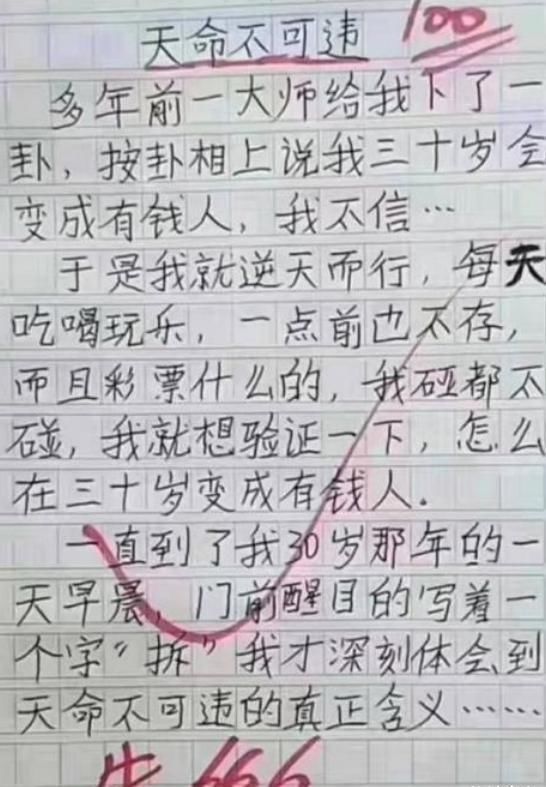 天命不可违
100
多年前一大师给我下了一
卦，按卦相上说我三十岁会
变成有钱人，我不信…
于是我就逆天而行，每天
吃喝玩乐，一点前也不存，
而且彩票什么的，我碰都不
碰，我就想验证一下，怎么
在三十岁变成有钱人.
一直到了我30岁那年的一
天早晨，门前醒目的写着一
个字“拆”我才深刻体会到
天命不可违的真正含义……
牛666